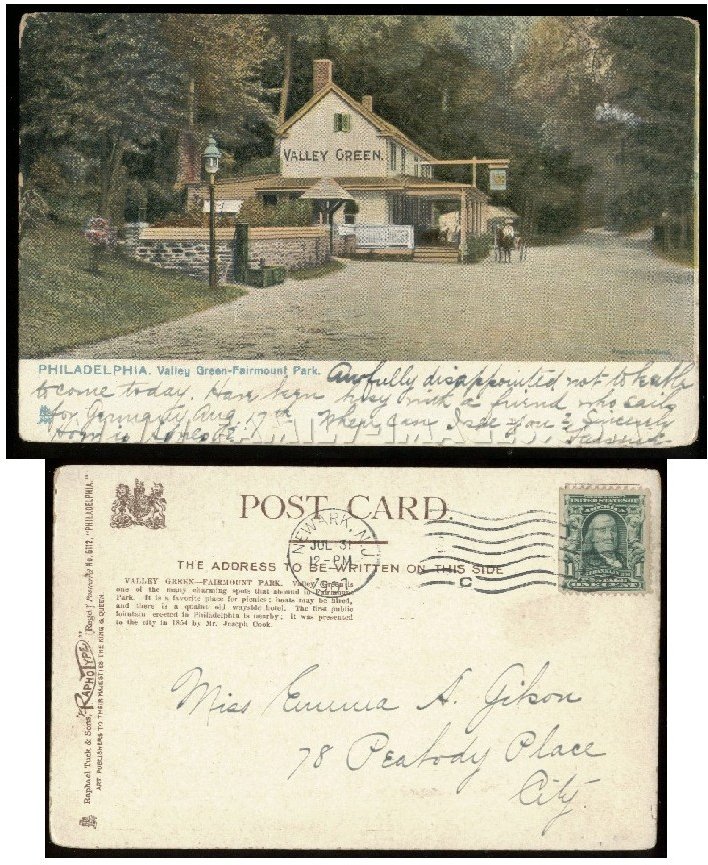 VALLEY GREEN.
PHILADELPHIA. Valley Green-Fairmount Park.
Awfully disappointed not to be able
to come today. Have been busy with a friend who sails
for Germany Aug. 17th. When can I see you? Sincerely
POST CARD.
NEWARK, N.J.
JUL 31
12-PM
1907
C
UNITED STATES OF AMERICA
1
FRANKLIN
ONE CENT
THE ADDRESS TO BE WRITTEN ON THIS SIDE
VALLEY GREEN—FAIRMOUNT PARK. Valley Green is
one of the many charming spots that abound in Fairmount
Park. It is a favorite place for picnics; boats may be hired,
and there is a quaint old wayside hotel. The first public
fountain erected in Philadelphia is nearby; it was presented
to the city in 1854 by Mr. Joseph Cook.
Raphael Tuck & Sons' "RAPHOTYPE" "Regal" Postcards No. 6112. "PHILADELPHIA."
ART PUBLISHERS TO THEIR MAJESTIES THE KING & QUEEN.
Miss Emma A. Gibson
78 Peabody Place
City.